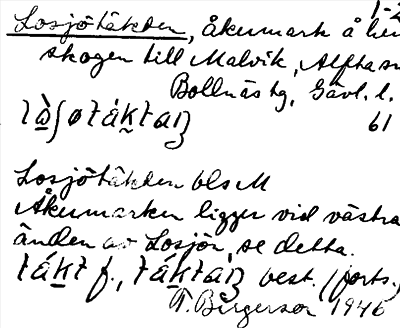 1-2
Losjötäkten, åkermark å hem
skogen till Malvik, Alfta sn
Bollnäs tg, Gävl. l.
61
Losjötäkten bls M
Åkermarken ligger vid västra
änden av Losjön, se detta.
f., best. (forts.)
T. Birgerson 1946